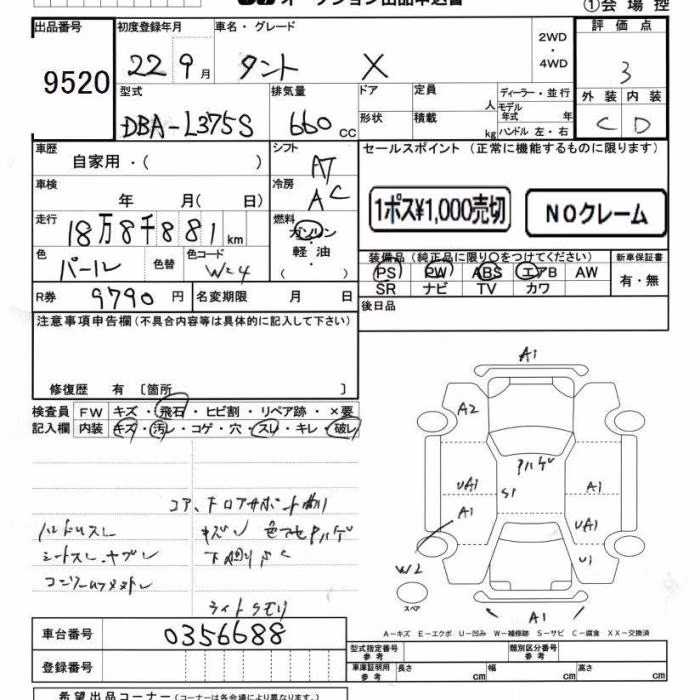 オークション出品申込書
①会場控
出品番号 初度登録年月 車名・グレード 2WD・4WD 評価点
9520 22 9月 タント X 3
型式 排気量 ドア 定員 人 ディーラー・並行 外装 内装
DBA-L375S 660cc 形状 積載 kg モデル年式 年 ハンドル 左・右 C D
車歴 自家用・( ) シフト AT セールスポイント (正常に機能するものに限ります)
車検 年 月( 日) 冷房 AC 1ポス¥1,000売切 NOクレーム
走行 18万8千881km 燃料 ガソリン・軽油・( )
色 パール 色替 色コード W24
装備品(純正品に限り○をつけてください) 新車保証書
PS PW ABS エアB AW 有・無
SR ナビ TV カワ
R券 9790円 名変期限 月 日 後日品
注意事項申告欄(不具合内容等は具体的に記入して下さい)
修復歴 有 〔箇所 〕
検査員 FW キズ・飛石・ヒビ割・リペア跡・×要
記入欄 内装 キズ・汚レ・コゲ・穴・スレ・キレ・破レ
コア、下ロアサポート曲り
ハンドルスレ キズ凹 色アセ
シートスレ・ヤブレ 下廻りサビ
ライトクモリ
A1
A2
ハゲ
UA1 S1 A1
A1 UA1
W2 U1
スペア
A1
A-キズ E-エクボ U-凹み W-補修跡 S-サビ C-腐食 XX-交換済
車台番号 0356688 型式指定番号 参考 類別区分番号 参考
登録番号 車庫証明用 参考 長さ cm 幅 cm 高さ cm
希望出品コーナー(コーナーは各会場により異なります。)